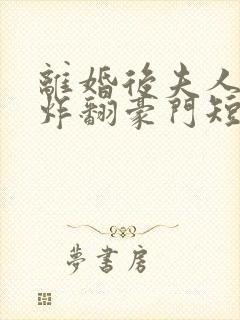 離婚後夫人
炸翻豪門短
夢書房